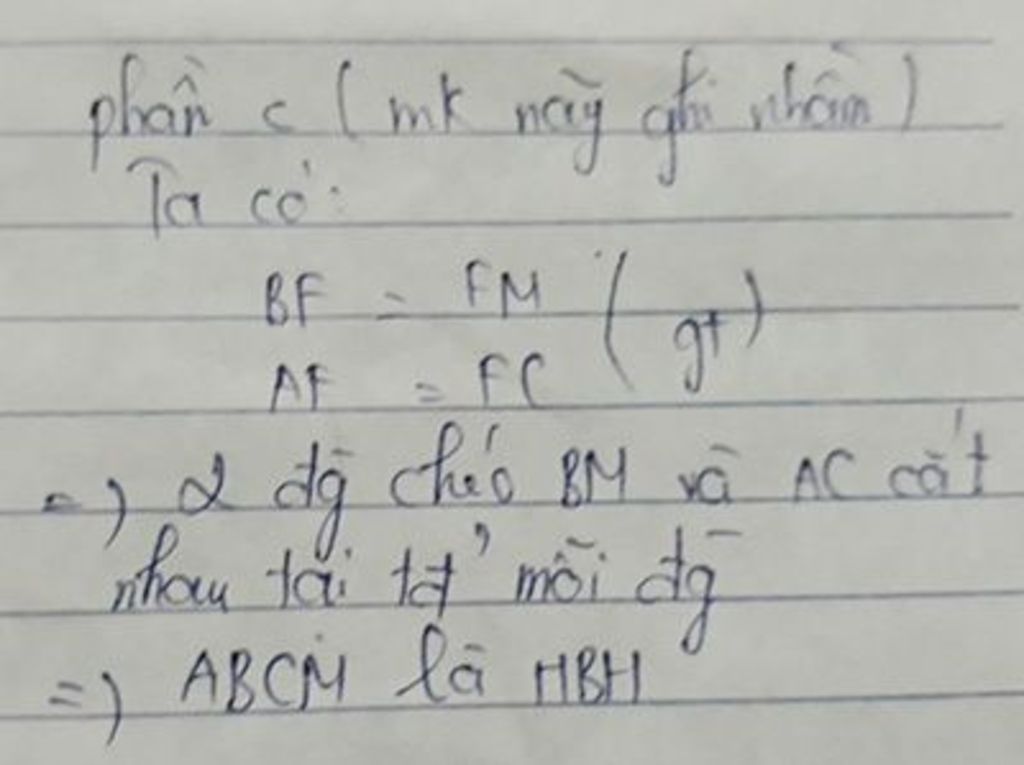 phần c (mk nãy ghi nhầm)
Ta có:
BF = FM (gt)
AF = FC
=) 2 đg chéo BM và AC cắt
nhau tại tđ' mỗi đg
=) ABCM là HBH